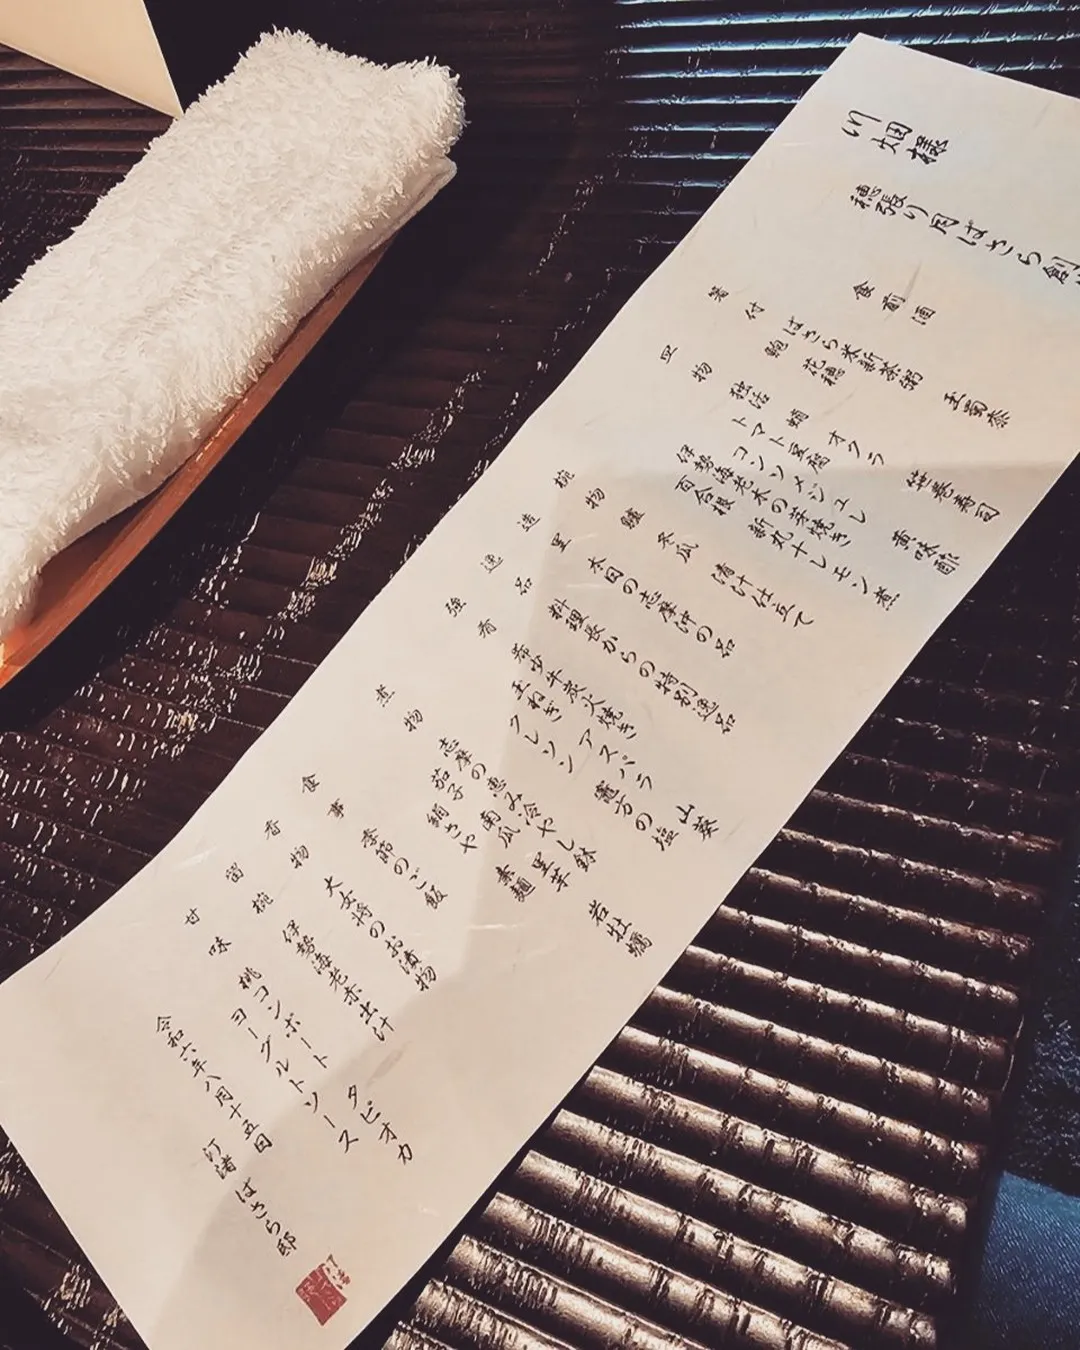 川畑様
穂張り月ばさら創
食前酒
箸付 ばさら米新茶粥 玉蜀黍
鮑 花穂 笹巻寿司
皿物 独活 蛸 オクラ 黄味酢
トマト豆腐 コンソメジュレ
伊勢海老木の芽焼き
百合根 新丸十レモン煮
椀物 鱧 冬瓜 清汁仕立て
造里 本日の志摩沖の品
逸品 料理長からの特別逸品
強肴 希少牛炭火焼き アスパラ 山葵
玉ねぎ クレソン 竈方の塩
煮物 志摩の恵み冷やし鉢 岩牡蠣
茄子 南瓜 里芋
絹さや 素麺
食事 季節のご飯
香物 大女将のお漬物
留椀 伊勢海老赤出汁
甘味 桃コンポート タピオカ
ヨーグルトソース
令和六年八月十五日 汀渚 ばさら邸